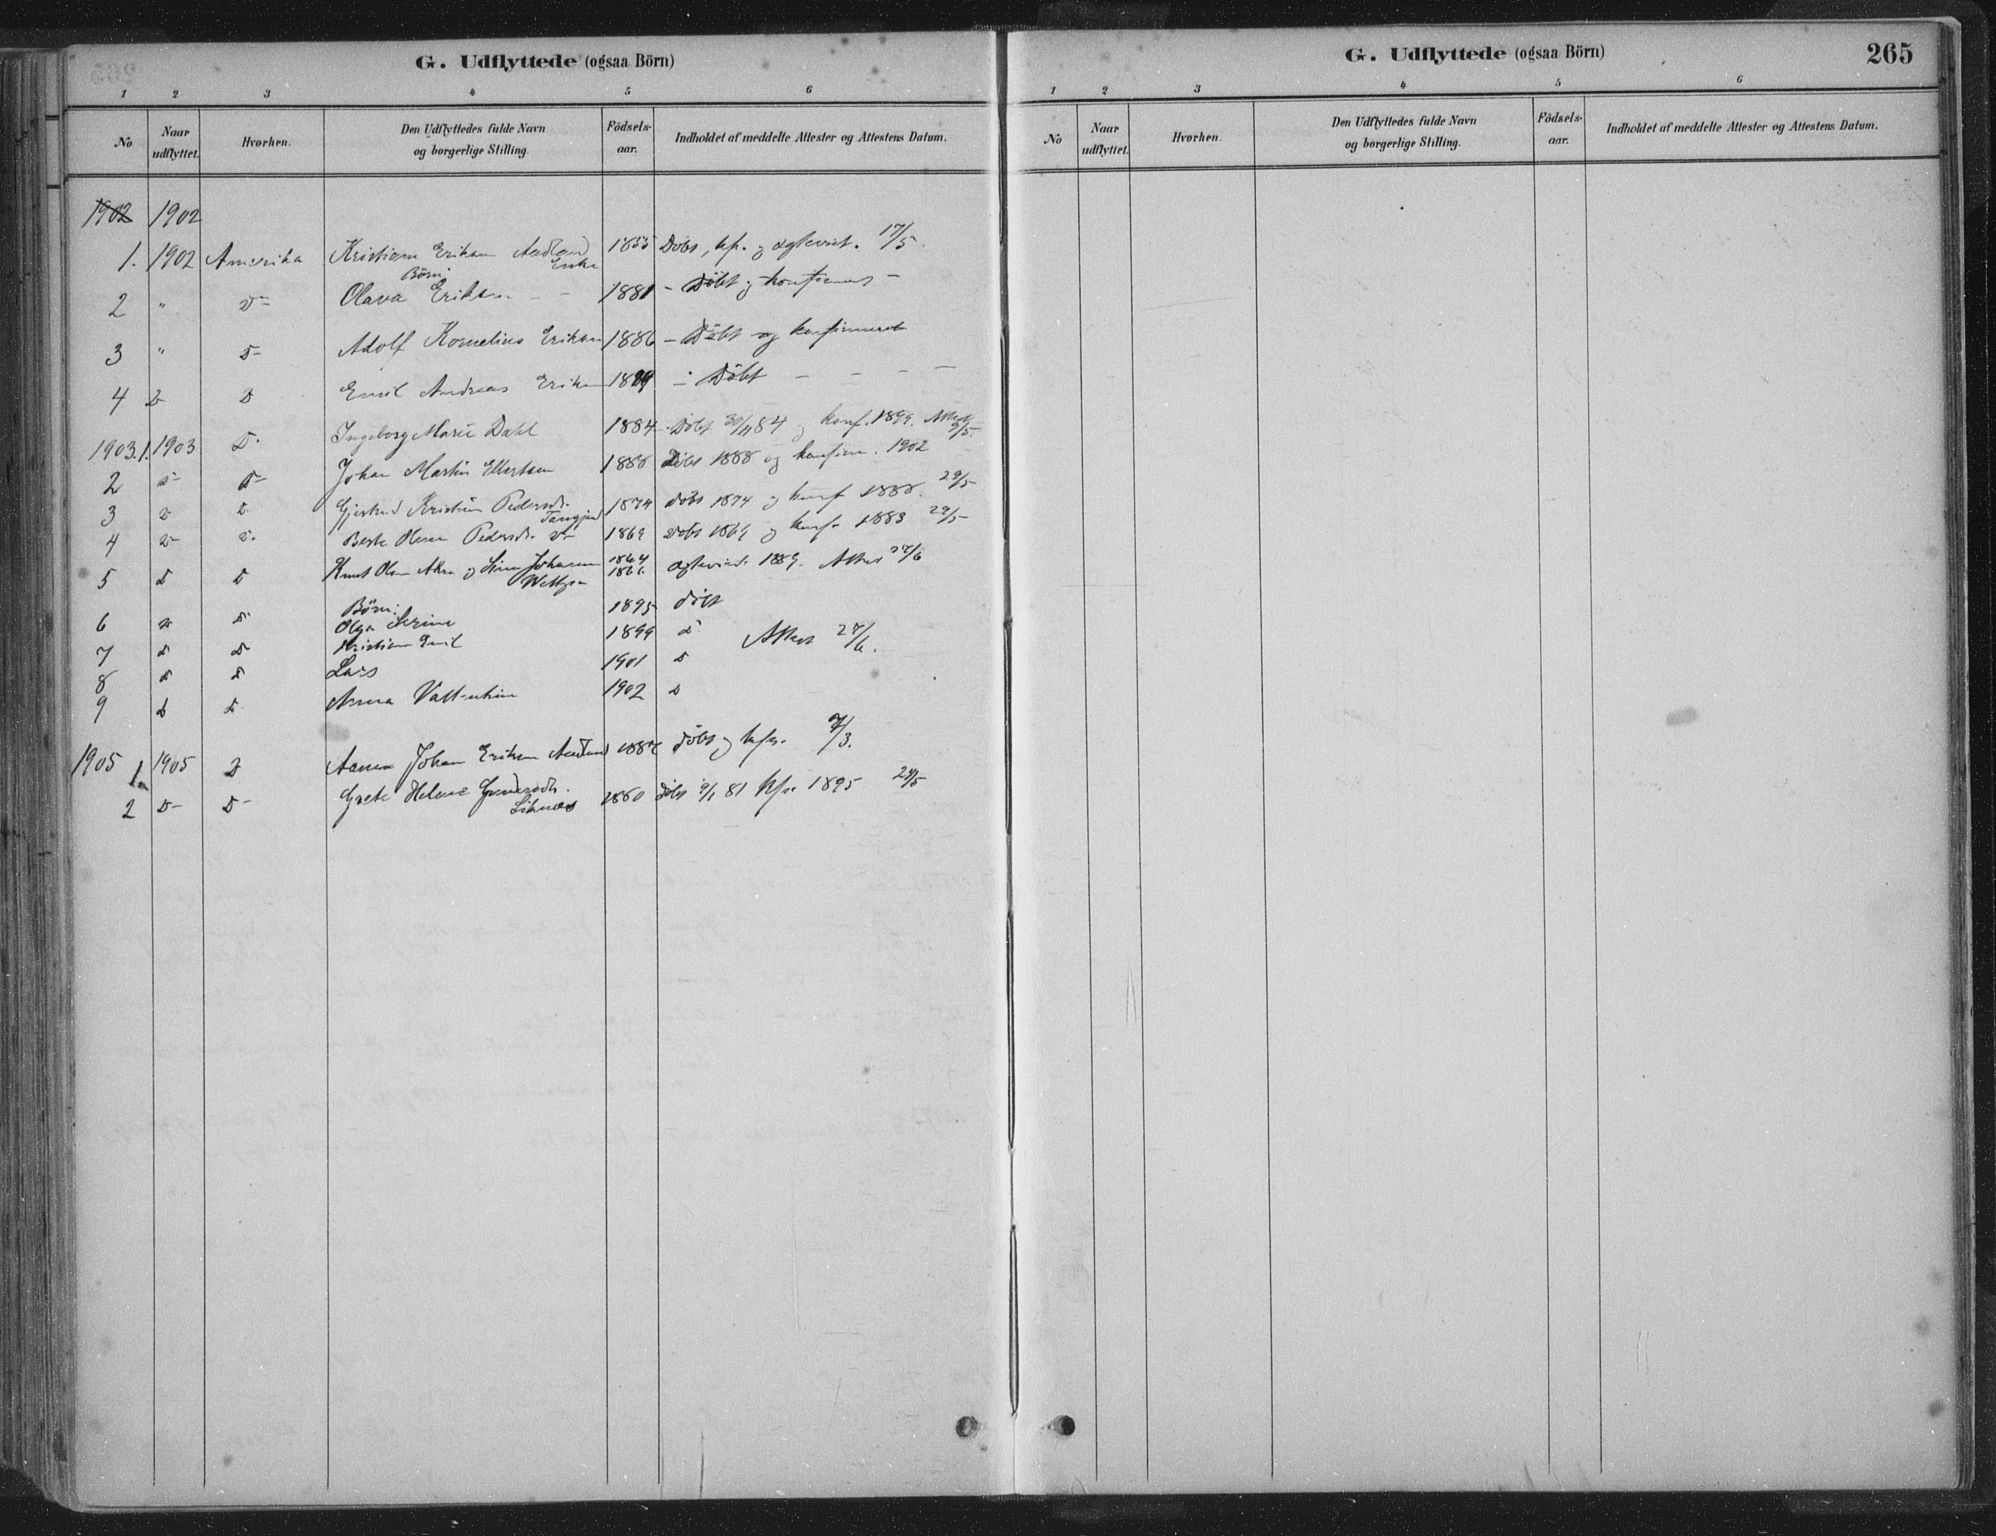 G. Udflyttede (ogsaa Börn)
1 2 3 4 5 6
No Naar udflyttet. Hvorhen. Den Udflyttedes fulde Navn og borgerlige Stilling. Födsels-aar. Indholdet af meddelte Attester og Attestens Datum.
1902 1902
1. 1902 Amerika Kristiane Eriksen Aadland Enke 1855 Døbt, kf. og ægteviet. 17/5
Börn:
2 " D- Olava Eriksen - - 1881 - Döbt og konfirmeret -
3 " D- Adolf Kornelius Eriksen 1886 - Döbt og konfirmeret
4 D D Emil Andreas Eriksen - Döbt - - - -
1903. 1. 1903 D. Ingeborg Marie Dahl 1884 - Döbt 30/11 84 og konf. 1899. Attest
2 D- D- Johan Martin 1888 Döbt 1888 og konfirm. 1902
3 D D Gjertrud Kristine Pedersdr. 1874 döbt 1874 og konf 1888. 29/5
4 D- D. Berte Pedersdr. D- 1869 Döbt 1869 og konf. 1883 29/5
5 D D Knut Olsen og Johanne 1864 ægteviede 1889. Attest 27/6
Börn:
6 D D Olga Serine 1895 döbt
7 D D Kristian Emil 1899 D Attest 27/6.
8 D D Lars 1901 D
9 D D Anna 1902 D
1905 1. 1905 D Johan Eriksen Aadland döbt og kfr. /3.
2 D- D- Grete Helene Gundersdtr. 1880 döbt 9/1 81 kfr. 1895 29/5
G. Udflyttede (ogsaa Börn) 265
1 2 3 4 5 6
No Naar udflyttet. Hvorhen. Den Udflyttedes fulde Navn og borgerlige Stilling. Födsels-aar. Indholdet af meddelte Attester og Attestens Datum.